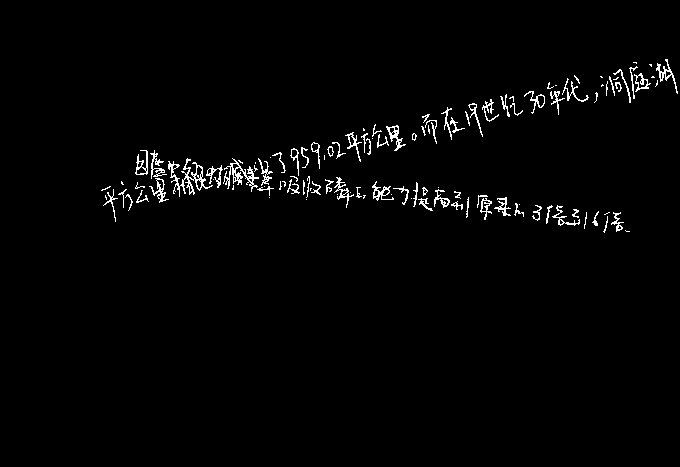 了959.02平方公里。而在19世纪30年代，洞庭湖
平方公里 吸收磷的能力提高到原来的3倍到6倍